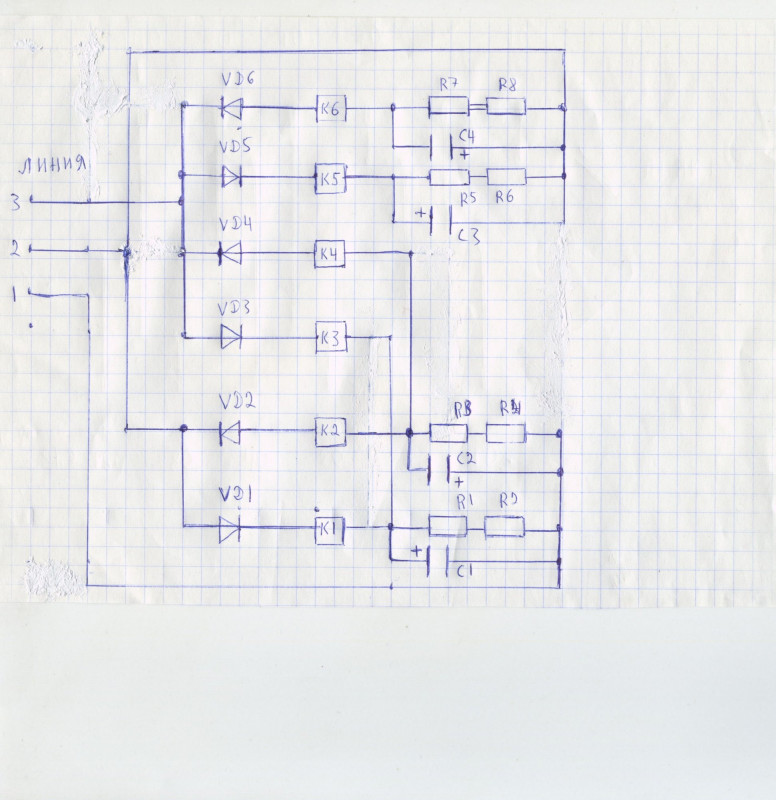 VD6
R7 R8
K6
C4
+
VD5
K5
R5 R6
ЛИНИЯ
3
+
C3
VD4
2
K4
1
VD3
K3
VD2
R3
K2
C2
+
VD1
R1
K1
+
C1